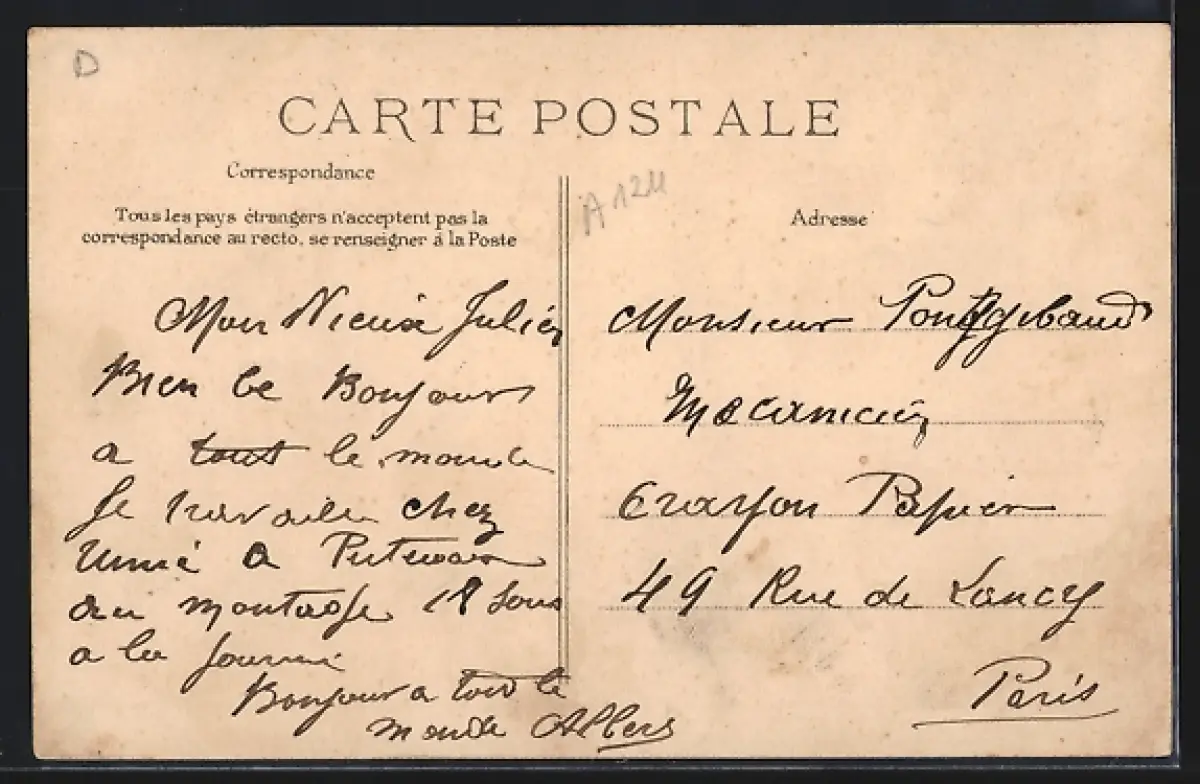 D
CARTE POSTALE
Correspondance
Tous les pays étrangers n'acceptent pas la
correspondance au recto, se renseigner à la Poste
Mon Vieux Julien
Bien le Bonjour
a tout le monde
Je travaile chez
a
au montage 18 sous
a la journé
Bonjour a tout le
monde Albert
A124
Adresse
Monsieur Pontgibaud
Mecanicien
Crayon Papier
49 Rue de Lancy
Paris